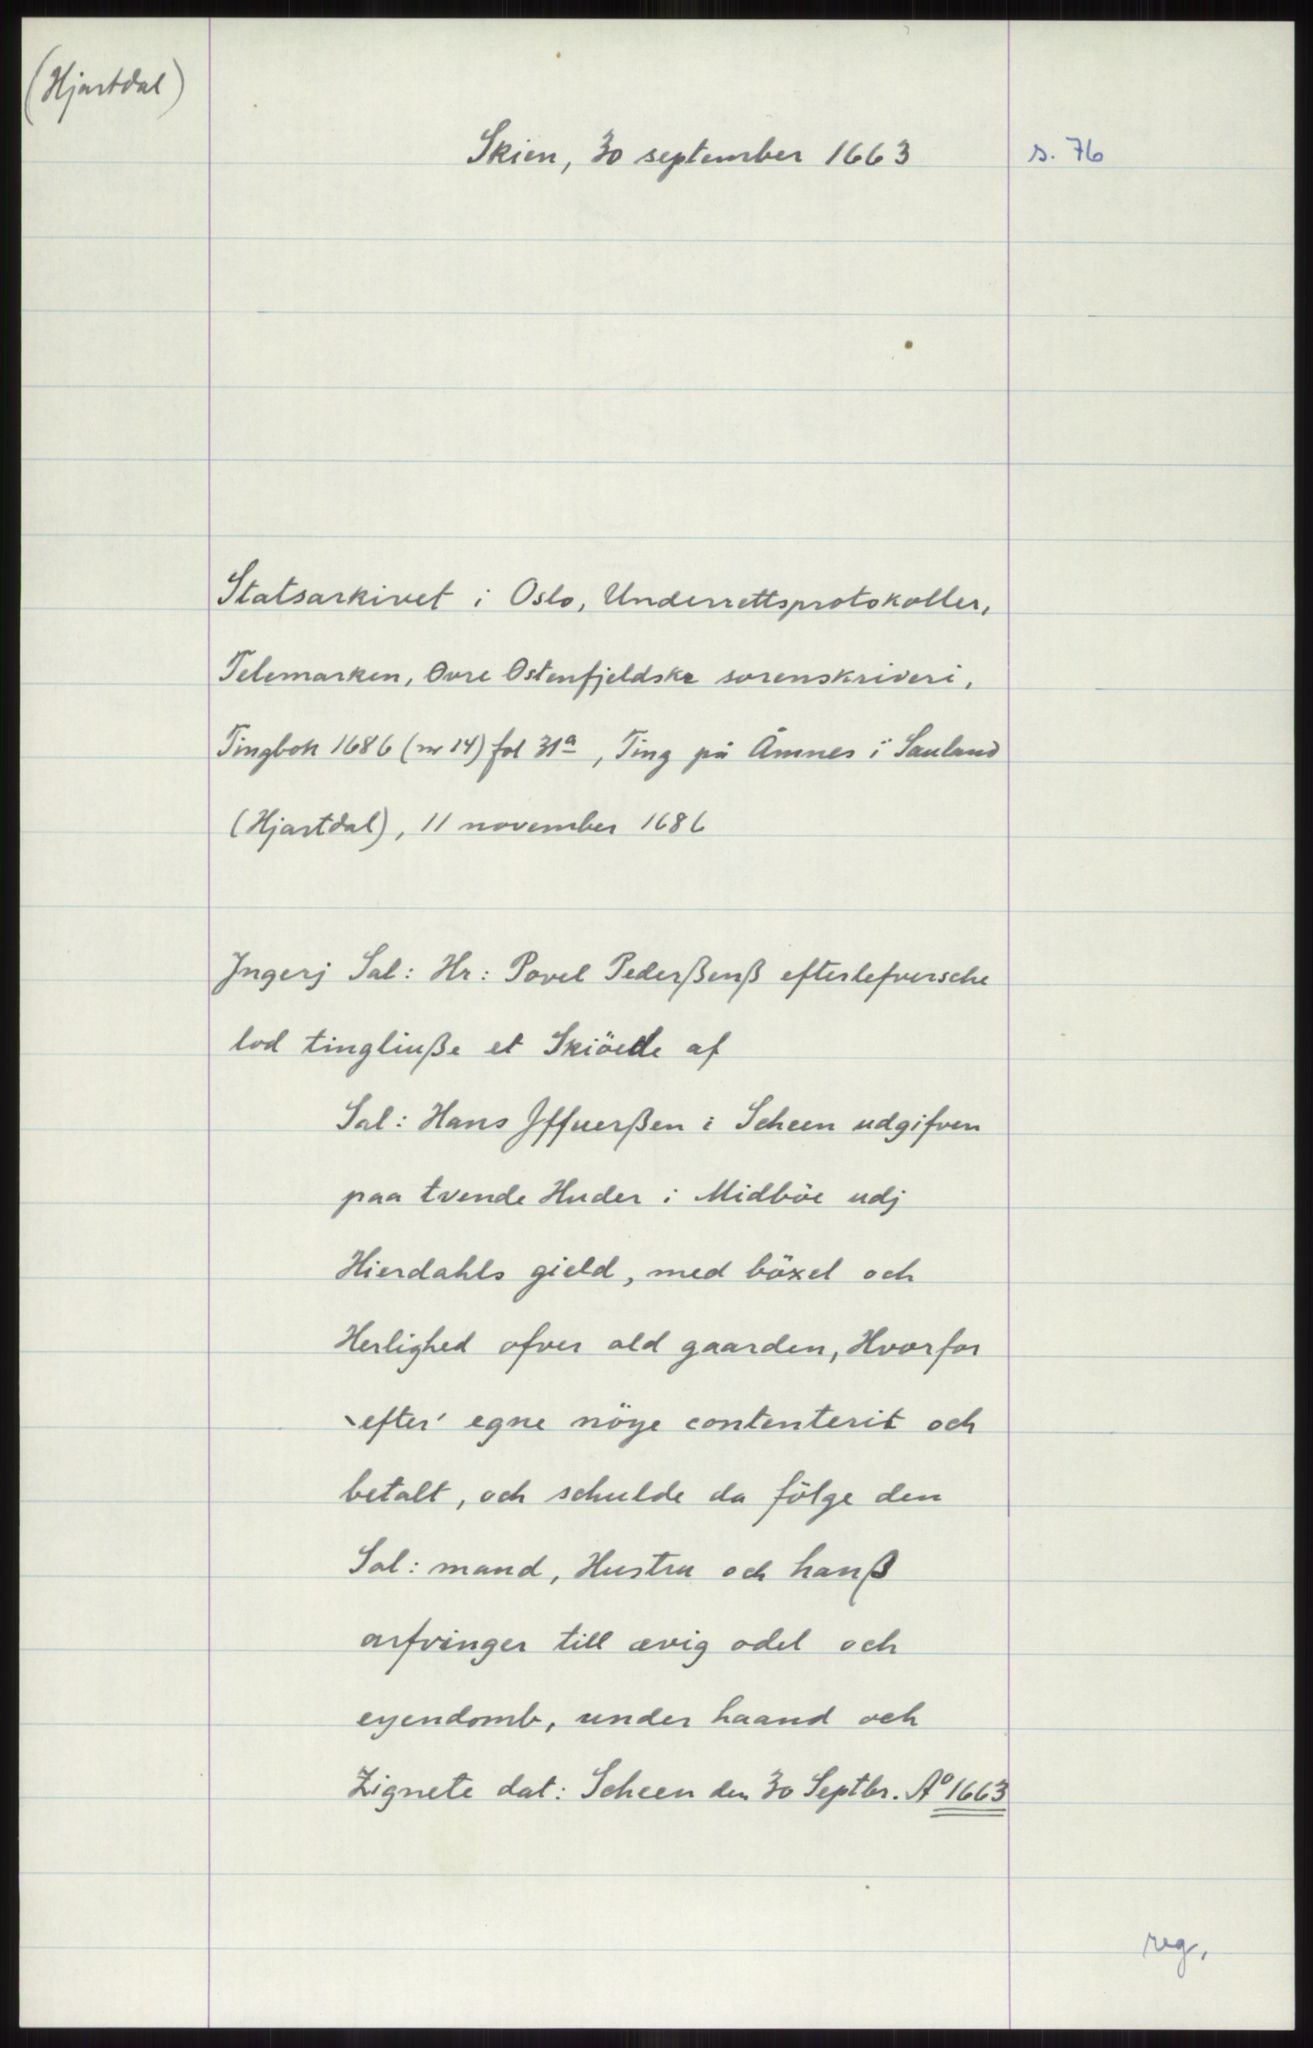 (Hjartdal)
Skien, 30 september 1663
s. 76
Statsarkivet i Oslo, Underrettsprotokoller,
Telemarken, Øvre Østenfjeldske sorenskriveri,
Tingbok 1686 (nr 14) fol 31a, Ting på Åmnes i Sauland
(Hjartdal), 11 november 1686
Jngerj Sal: Hr: Povel Pederßenß efterlefversche
lod tingliuße et Skiöede af
Sal: Hans Jffuerßen i Scheen udgifven
paa tvende Huder i Midböe udj
Hierdahls gield, med böxel och
Herlighed ofver ald gaarden, Hvorfor
`efter´ egne nöye contenterit och
betalt, och schulde da fölge den
Sal: mand, Hustru och hanß
arfvinger till ævig odel och
eyendomb, under haand och
Zignete dat: Scheen den 30 Septbr. Aº 1663
reg.